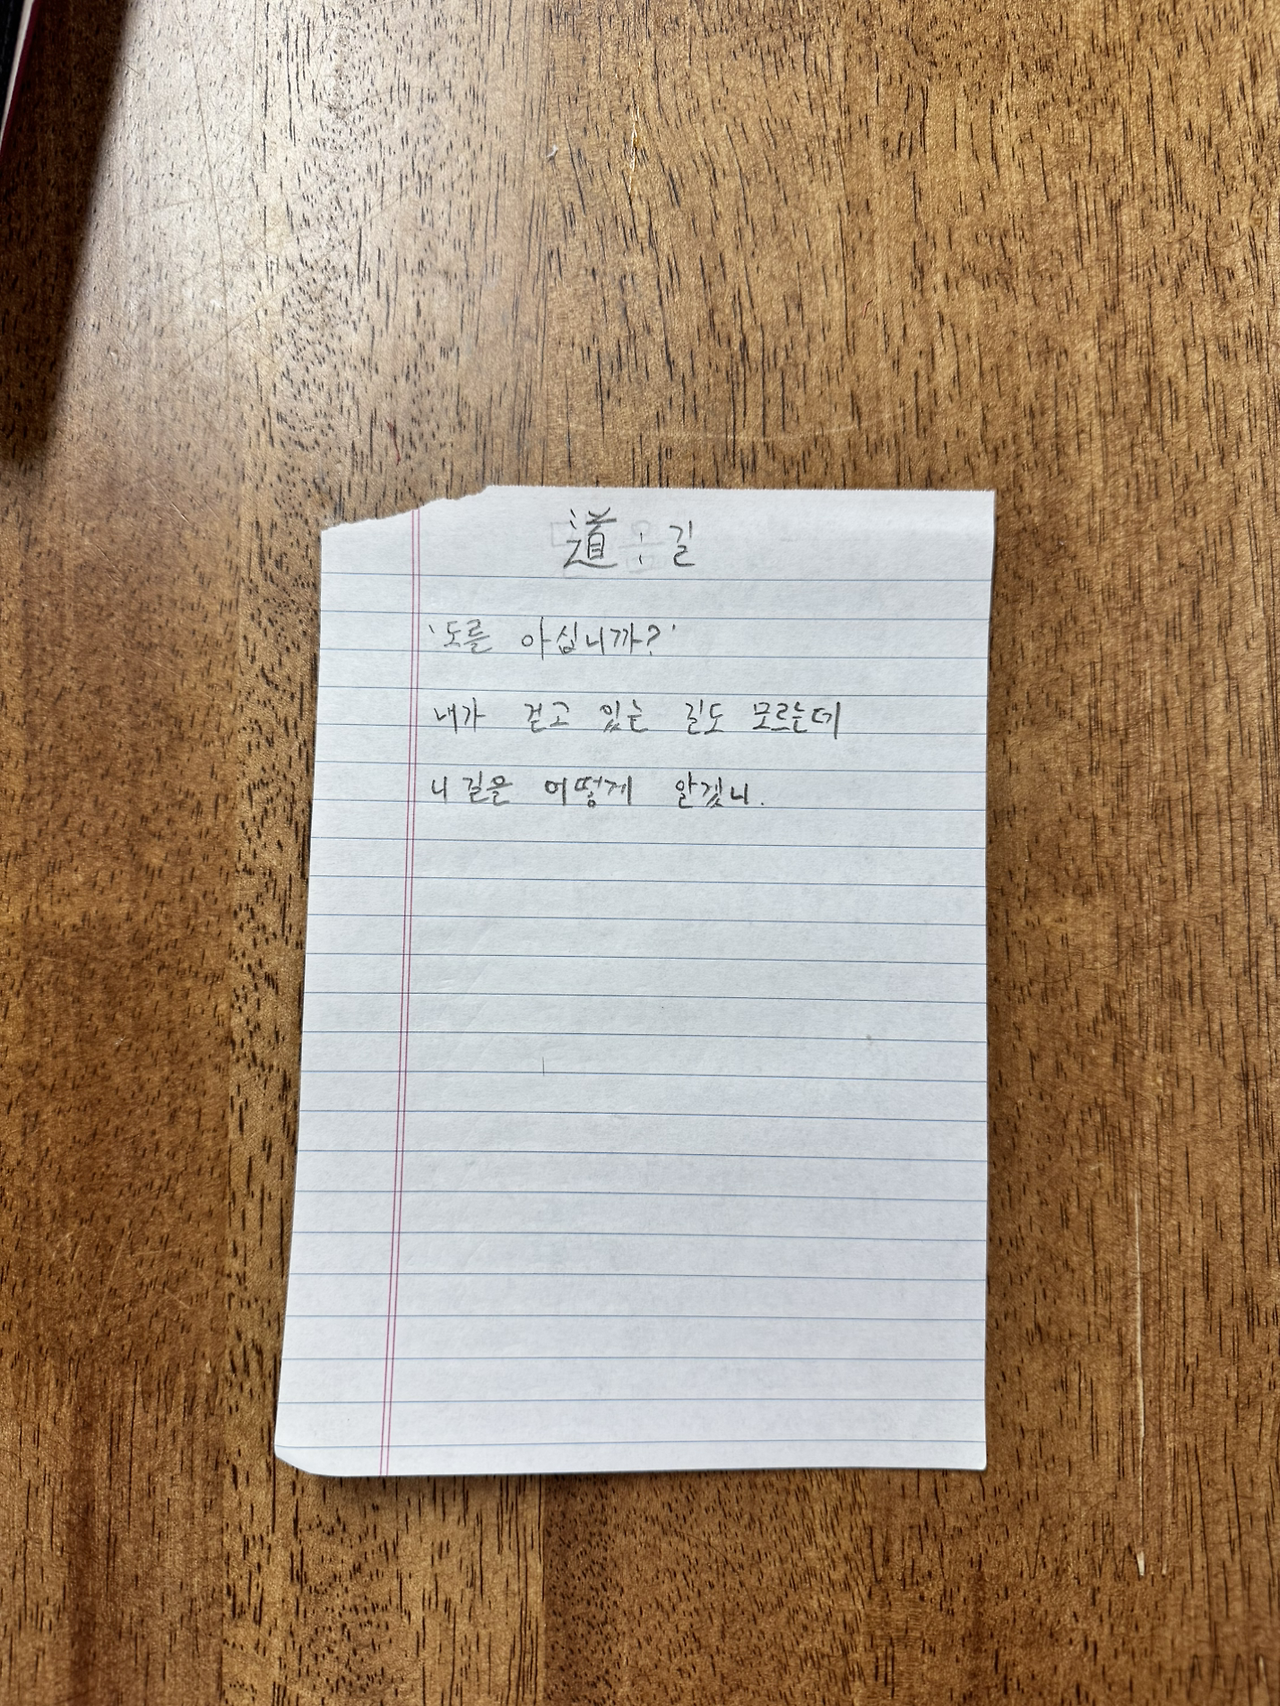 道 : 길
'도를 아십니까?'
내가 걷고 있는 길도 모르는데
니 길을 어떻게 알겠니.